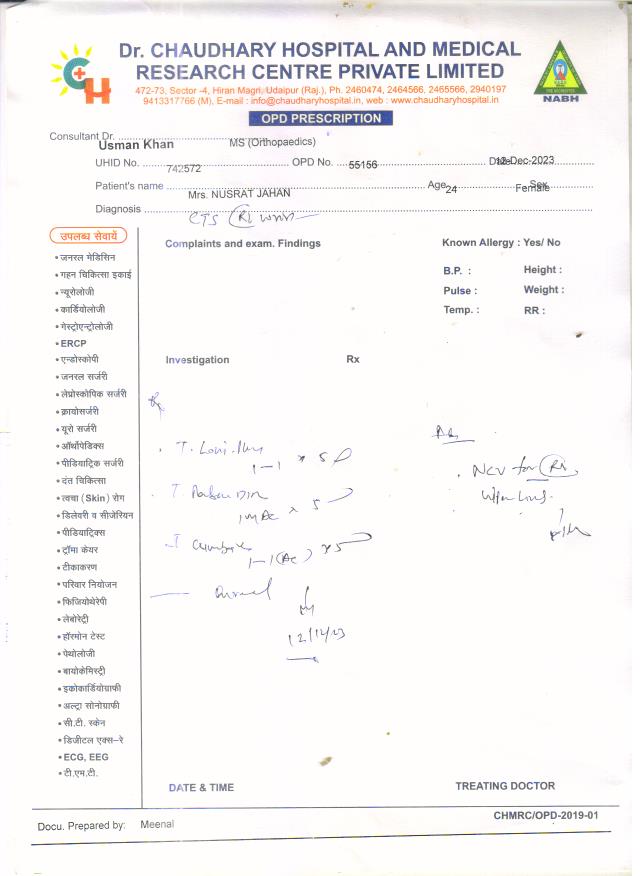 Dr. CHAUDHARY HOSPITAL AND MEDICAL
RESEARCH CENTRE PRIVATE LIMITED
472-73, Sector -4, Hiran Magri, Udaipur (Raj.), Ph. 2460474, 2464566, 2465566, 2940197
9413317766 (M), E-mail : info@chaudharyhospital.in, web : www.chaudharyhospital.in
CH
NABH
OPD PRESCRIPTION
Consultant Dr. Usman Khan MS (Orthopaedics)
UHID No. 742572 OPD No. 55156 Date 12-Dec-2023
Patient's name Mrs. NUSRAT JAHAN Age 24 Sex Female
Diagnosis CTS (Rt)
उपलब्ध सेवायें
• जनरल मेडिसिन
• गहन चिकित्सा इकाई
• न्यूरोलोजी
• कार्डियोलोजी
• गेस्ट्रोएन्ट्रोलोजी
• ERCP
• एन्डोस्कोपी
• जनरल सर्जरी
• लेप्रोस्कोपिक सर्जरी
• क्रायोसर्जरी
• यूरो सर्जरी
• ऑर्थोपेडिक्स
• पीडियाट्रिक सर्जरी
• दंत चिकित्सा
• त्वचा (Skin) रोग
• डिलेवरी व सीजेरियन
• पीडियाट्रिक्स
• ट्रॉमा केयर
• टीकाकरण
• परिवार नियोजन
• फिजियोथेरेपी
• लेबोरेट्री
• हॉरमोन टेस्ट
• पेथोलोजी
• बायोकेमिस्ट्री
• इकोकार्डियोग्राफी
• अल्ट्रा सोनोग्राफी
• सी.टी. स्केन
• डिजीटल एक्स-रे
• ECG, EEG
• टी.एम.टी.
Complaints and exam. Findings
Known Allergy : Yes/ No
B.P. : Height :
Pulse : Weight :
Temp. : RR :
Investigation Rx
Rx
T.
1-1 x 5
T.
x 5
T
1-1 x 5
12/12/23
NCV for (Rt)
DATE & TIME TREATING DOCTOR
CHMRC/OPD-2019-01
Docu. Prepared by: Meenal